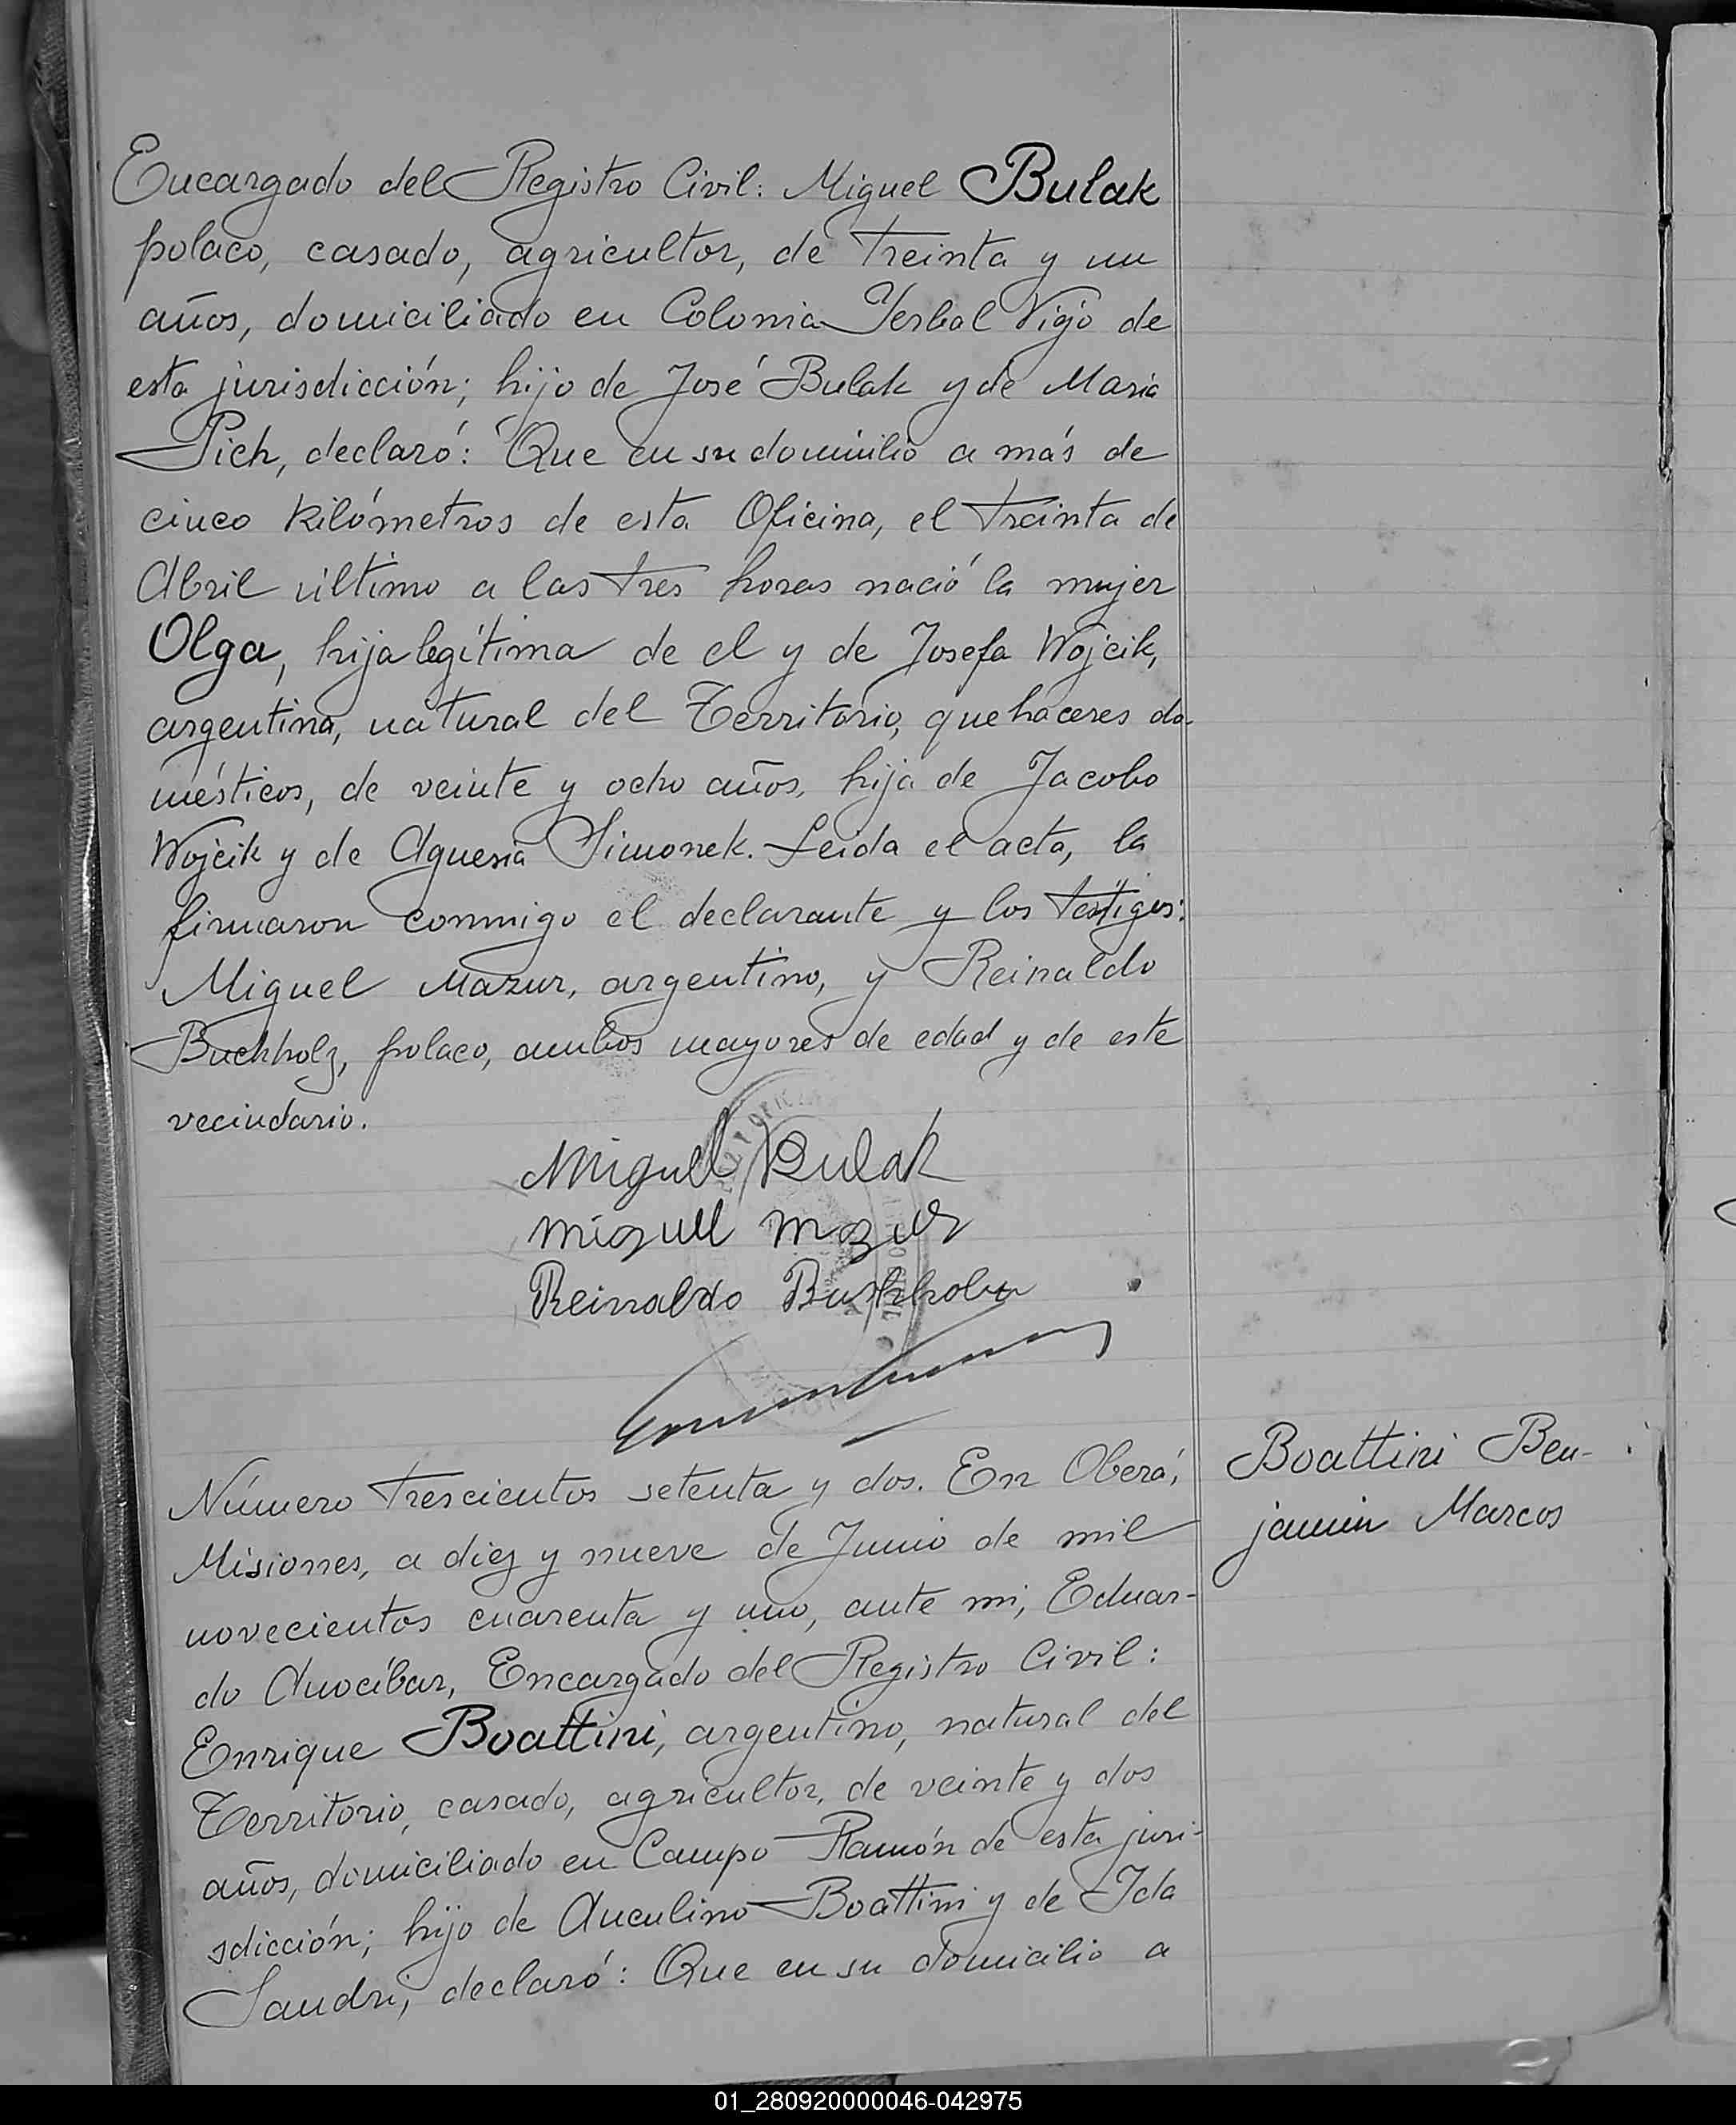 Encargado del Registro Civil: Miguel Bulak
polaco, casado, agricultor, de treinta y un
años, domiciliado en Colonia Yerbal Vigo de
esta jurisdicción; hijo de José Bulak y de Maria
Pich, declaró: Que en su domicilio a más de
cinco kilómetros de esta Oficina, el treinta de
Abril último a las tres horas nació la mujer
Olga, hija legítima de el y de Josefa Wojcik,
argentina, natural del Territorio, quehaceres do-
mésticos, de veinte y ocho años, hija de Jacobo
Wojcik y de Aguesia Simonek. Leida el acta, la
firmaron conmigo el declarante y los testigos:
Miguel Mazur, argentino, y Reinaldo
Buchholz, polaco, ambos mayores de edad y de este
vecindario.
Miguel Bulak
Miguel Mazur
Reinaldo
Número trescientos setenta y dos. En Oberá,
Misiones, a diez y nueve de Junio de mil
novecientos cuarenta y uno, ante mi, Eduar-
do Anocíbar, Encargado del Registro Civil:
Enrique Boattini, argentino, natural del
Territorio, casado, agricultor, de veinte y dos
años, domiciliado en Campo Ramón de esta juri-
sdicción; hijo de Anculino Boattini y de Ida
Sandri, declaró: Que en su domicilio a
Boattini Ben-
jamin Marcos
01_280920000046-042975